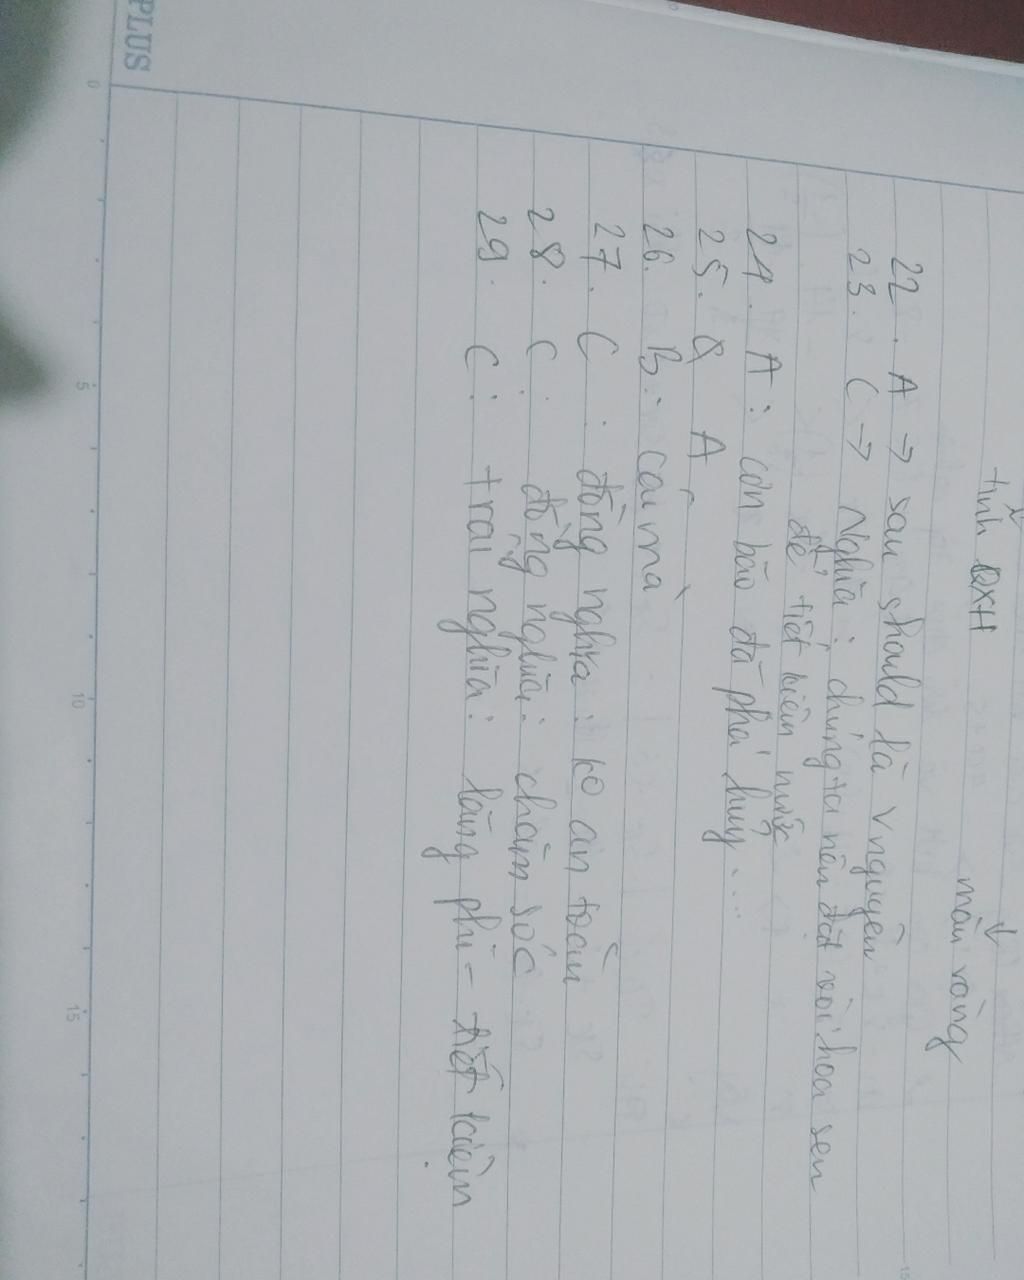 PLUS
tính QXH
↓
màu vàng
22. A → sau should là V nguyên
23. C → Nghĩa: chúng ta nên đặt vòi hoa sen
để tiết kiệm nước
24. A: cơn bão đã phá huỷ....
25. A
26. B: cái mà
27. C: đồng nghĩa: ko an toàn
28. C: đồng nghĩa: chăm sóc
29. C: trái nghĩa: lãng phí - tiết kiệm
0
5
10
15